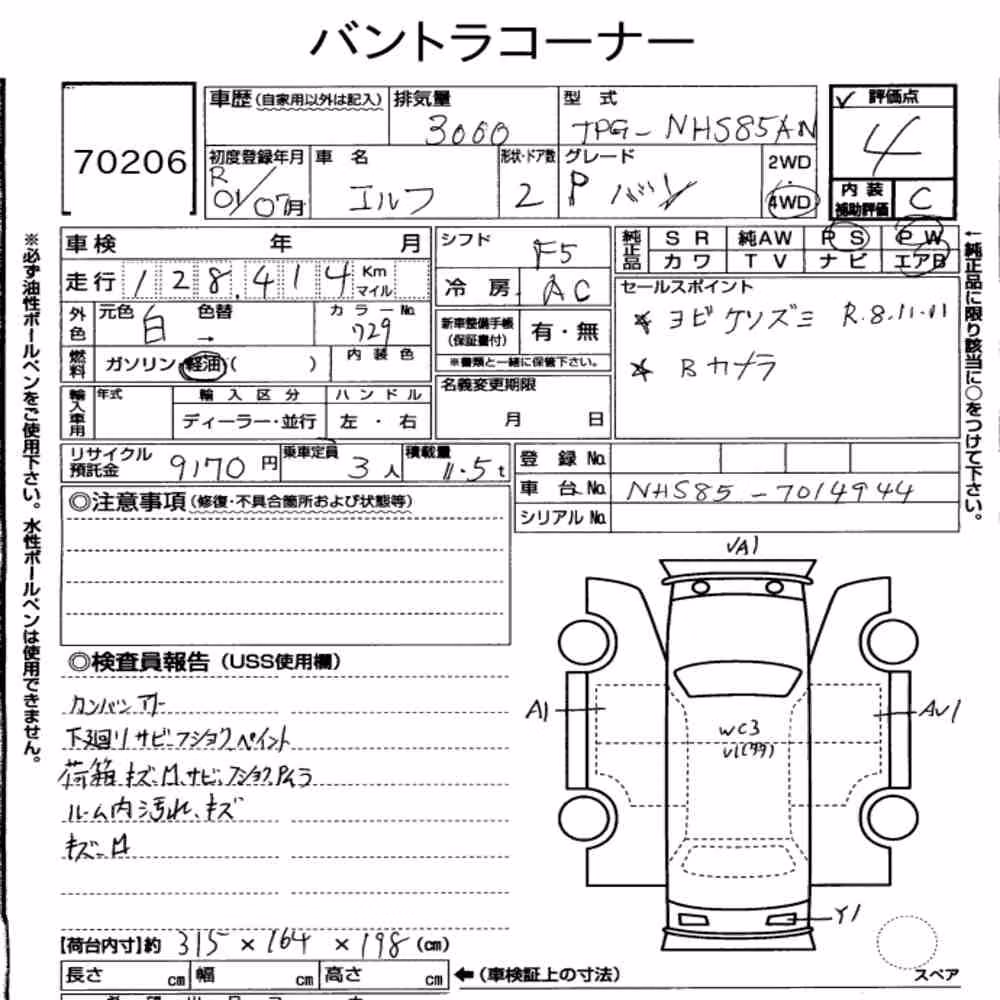 バントラコーナー
70206
車歴(自家用以外は記入)
排気量
3000
型 式
TPG-NHS85AN
✓ 評価点
4
初度登録年月
R
01/07月
車 名
エルフ
形状・ドア数
2
グレード
P バン
2WD
4WD
内 装
補助評価
C
※必ず油性ボールペンをご使用下さい。水性ボールペンは使用できません。
車検 年 月
走行 128,414 Km
マイル
シフト
F5
冷 房
AC
純正品
S R 純AW P S P W
カ ワ T V ナ ビ エアB
←純正品に限り該当に○をつけて下さい。
外色
元色 白 色替 →
カ ラ ー No.
729
燃料
ガソリン・軽油( )
内 装 色
新車整備手帳
(保証書付)
有・無
※書類と一緒に保管下さい。
セールスポイント
* ヨビケンズミ R.8.11.11
* Bカメラ
輸入車用
年式
輸 入 区 分
ディーラー・並行
ハ ン ド ル
左 ・ 右
名義変更期限
月 日
リサイクル
預託金
9170 円
乗車定員
3 人
積載量
1.5 t
登 録 No.
車 台 No.
NHS85-7014944
シリアル No.
◎注意事項(修復・不具合箇所および状態等)
◎検査員報告(USS使用欄)
カンバンアリ
下廻リサビフショクペイント
荷箱キズ凹、サビ、フショクPムラ
ルーム内汚れ、キズ
キズ凹
VA1
A1
AU1
WC3
Y1
スペア
【荷台内寸】約 315 × 164 × 198 (cm)
長さ cm 幅 cm 高さ cm
←(車検証上の寸法)